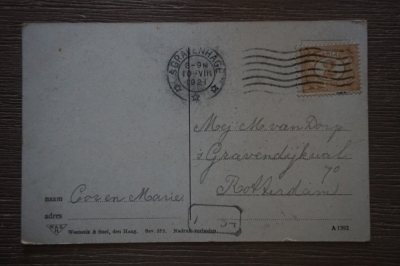 'S GRAVENHAGE
10 VIII
1921
Mej M. van Dorp
's Gravendijkwal
70
Rotterdam
naam Cor en Marie
adres
Weenenk & Snel, den Haag. Ser. 571. Nadruk verboden
A 1262